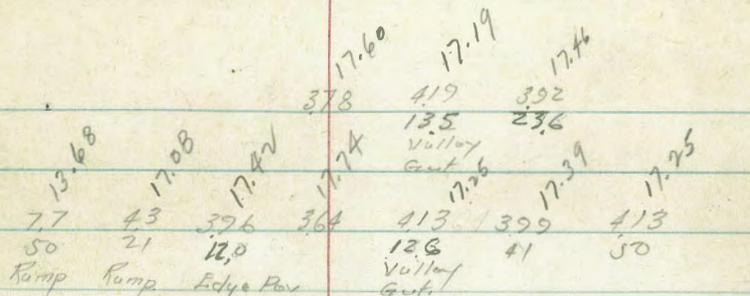 17.60 17.19 17.46
3.78 4.19 3.92
13.5 23.6
Valley
Gut.
13.68 17.08 17.42 17.74 17.25 17.39 17.25
7.7 4.3 3.96 3.64 4.13 3.99 4.13
50 21 12.0 12.6 41 50
Ramp Ramp Edge Pav Valley
Gut.